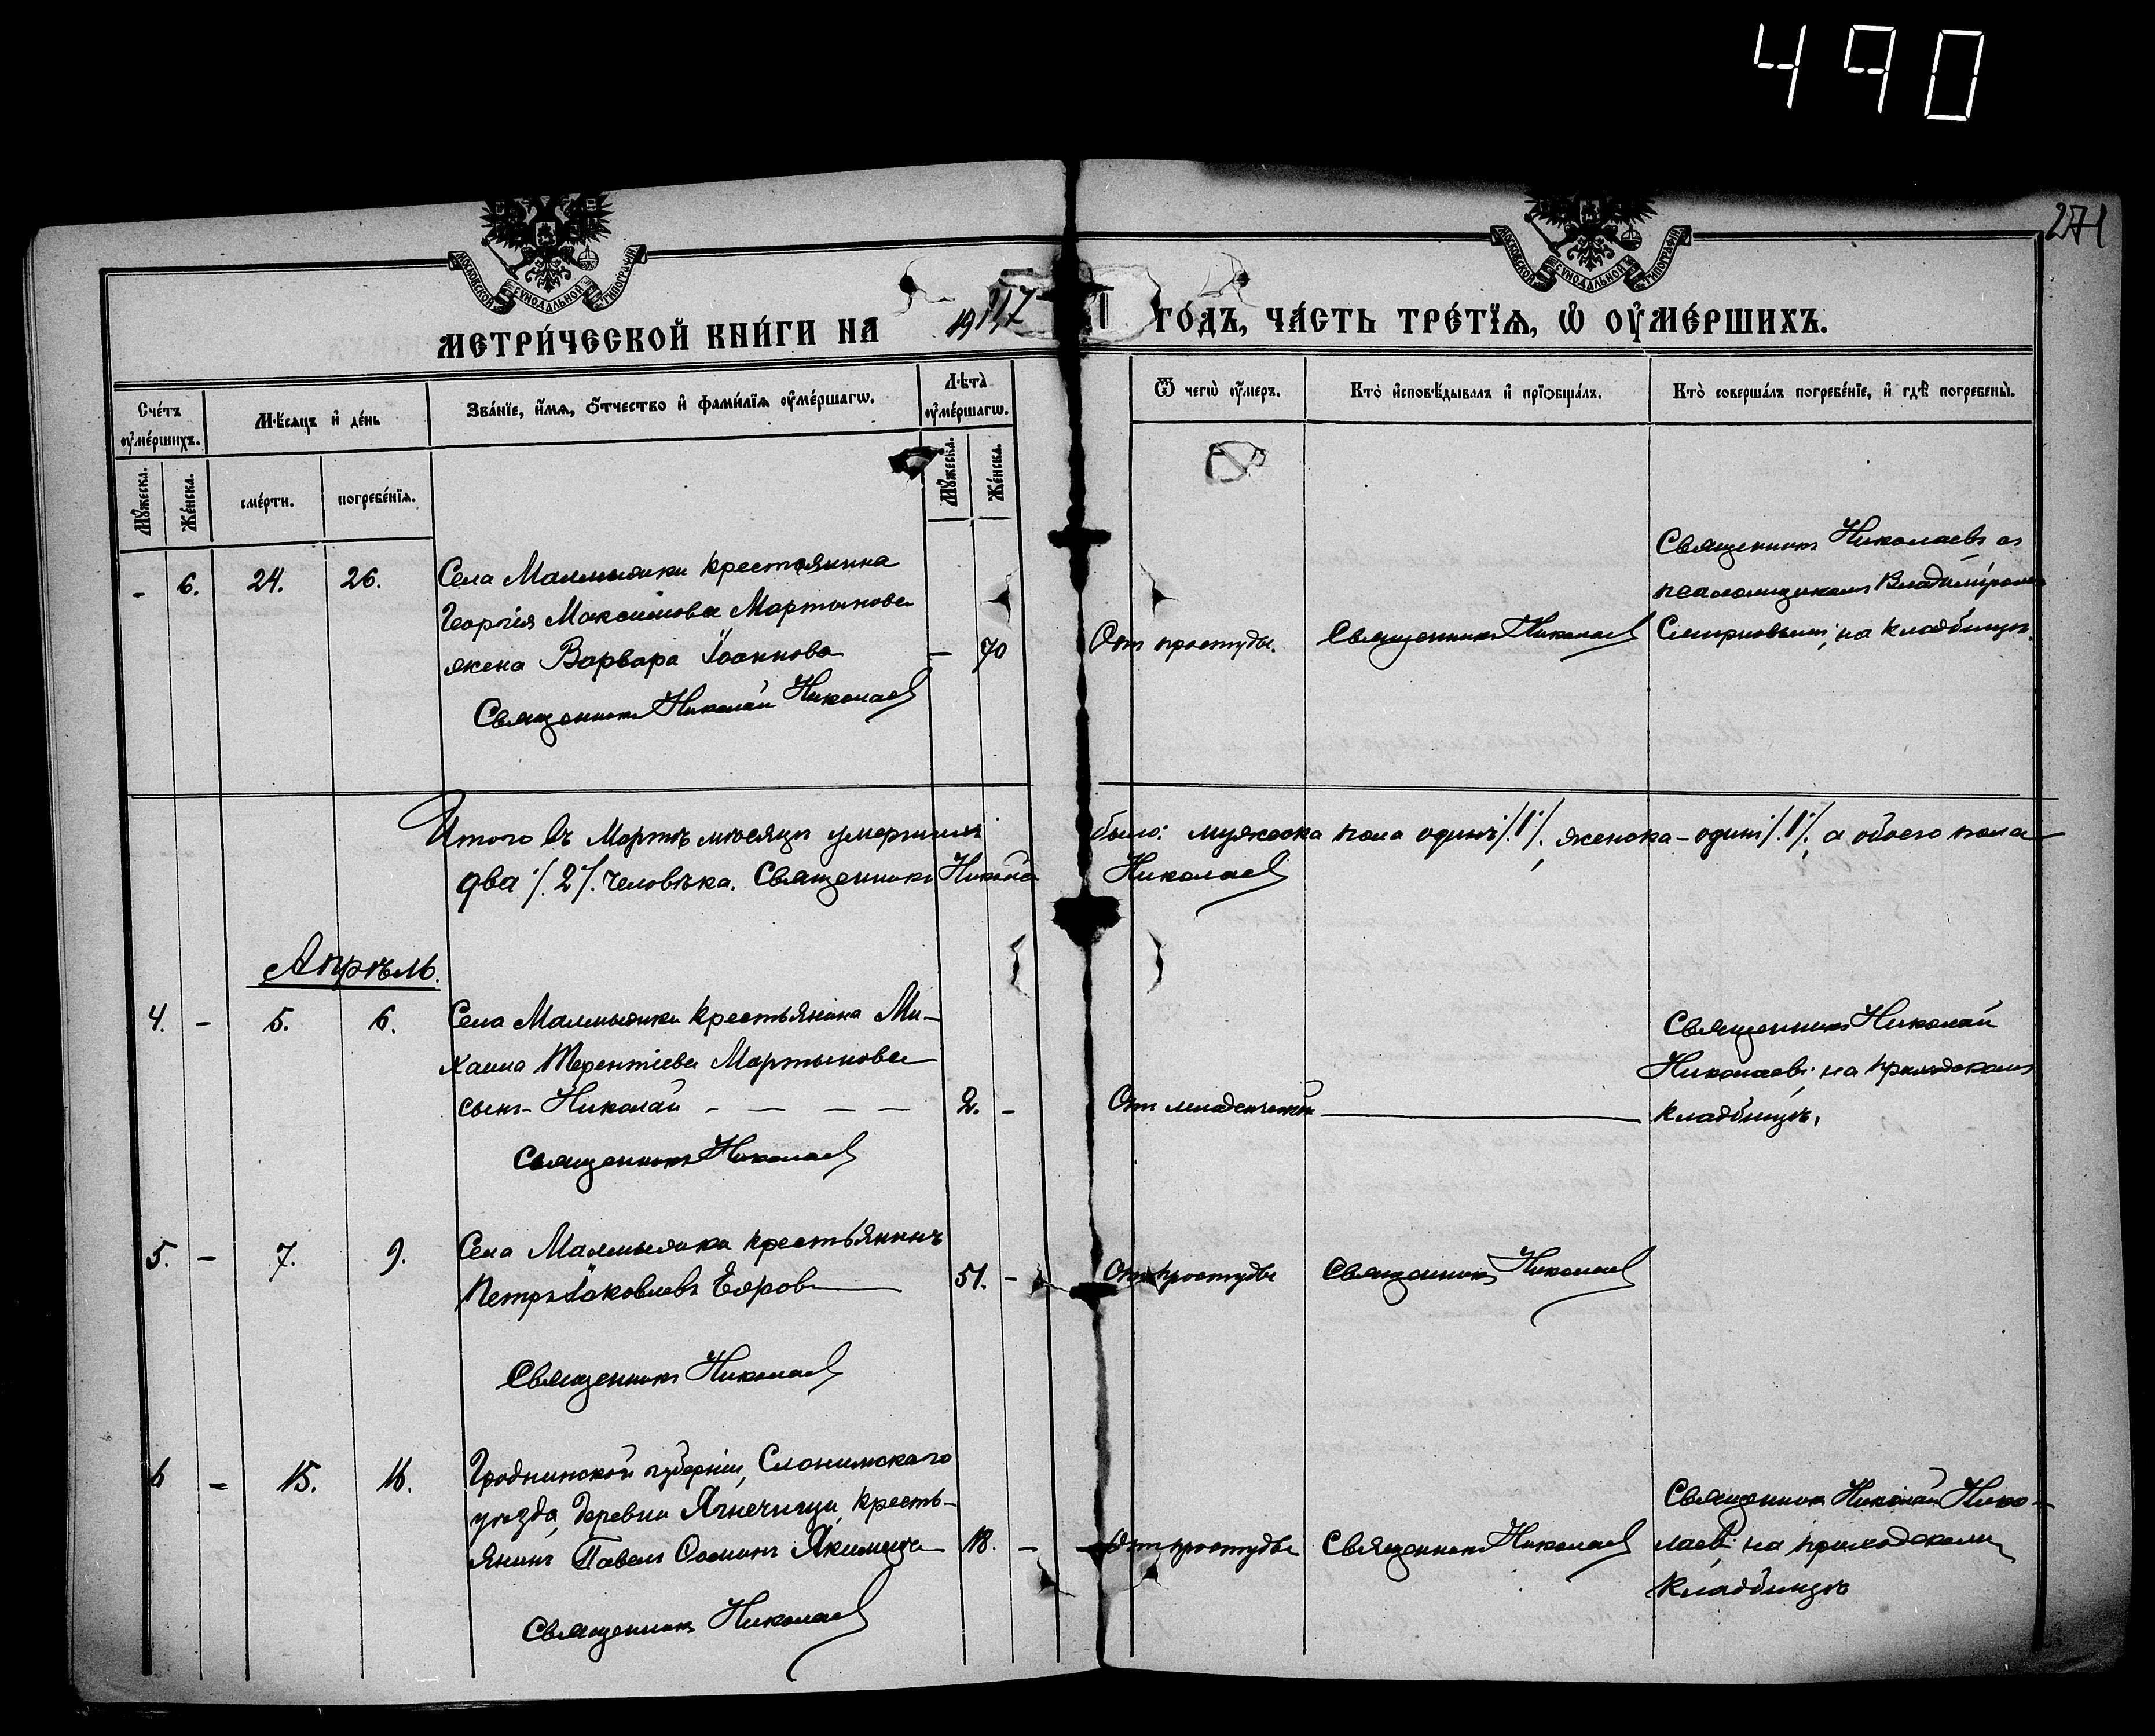 490
271
МОСКОВСКОЙ СѴНОДАЛЬНОЙ ТИПОГРАФІИ
МОСКОВСКОЙ СѴНОДАЛЬНОЙ ТИПОГРАФІИ
МЕТРИ́ЧЕСКОЙ КНИ́ГИ НА 1917 ГО́ДЪ, ЧА́СТЬ ТРЕ́ТЇѦ, Ѡ҆ ОУ҆МЕ́РШИХЪ.
Сче́тъ оу҆ме́ршихъ.
Мꙋ́жеска.
Же́нска.
Мѣ́сѧцъ и҆ де́нь
сме́рти.
погребе́нїѧ.
Зва́нїе, и҆́мѧ, ѻ҆́тчество и҆ фами́лїѧ оу҆ме́ршагѡ.
Лѣ́та оу҆ме́ршагѡ.
Мꙋ́жеска.
Же́нска.
Ѿ чегѡ̀ оу҆́меръ.
Кто̀ и҆сповѣ́дывалъ и҆ прїѻбща́лъ.
Кто̀ соверша́лъ погребе́нїе, и҆ гдѣ̀ погребены̀.
- 6. 24. 26.
Села Малмыжки крестьянина
Георгія Максимова Мартынова
жена Варвара Іоаннова — 70
Священникъ Николай Николаев
От простуды.
Священникъ Николаев
Священникъ Николаевъ съ
псаломщикомъ Владиміромъ
Смирновымъ; на кладбищѣ.
Итого въ Мартѣ мѣсяцѣ умершихъ было: мужеска пола одинъ /.1./, женска - одинъ /.1./, а обоего пола
два /.2./. человѣка. Священникъ Николай Николаев
Апрѣль.
4. - 5. 6.
Села Малмыжки крестьянина Ми-
хаила Терентіева Мартынова
сынъ - Николай — — — — 2. -
Священникъ Николаев
От младенческой
Священникъ Николай
Николаевъ; на приходскомъ
кладбищѣ.
5. - 7. 9.
Села Малмыжки крестьянинъ
Петръ Іаковлевъ 51. -
Священникъ Николаев
От простуды
Священникъ Николаев
6 - 15. 16.
Гродненской губерніи, Слонимскаго
уѣзда, деревни крестья-
янинъ Павелъ 18. -
Священникъ Николаев
От простуды
Священникъ Николаев
Священникъ Николай Нико-
лаев; на приходскомъ
кладбищѣ